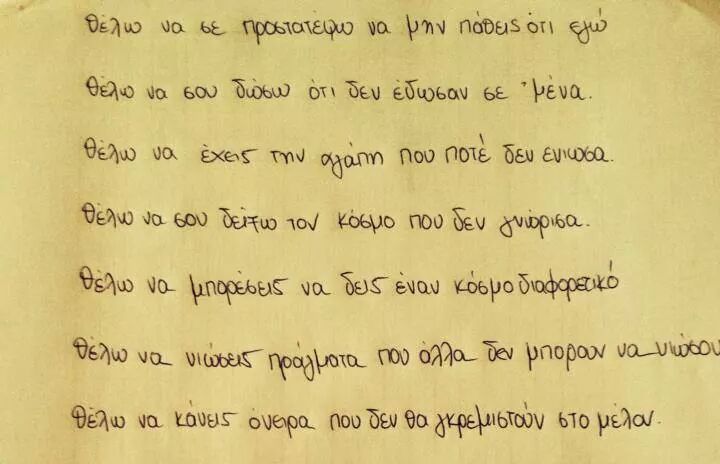 θέλω να σε προστατέψω να μην πάθεις ότι εγώ
θέλω να σου δώσω ότι δεν έδωσαν σε 'μένα.
θέλω να έχεις την αγάπη που ποτέ δεν ενιωσα.
θέλω να σου δείξω τον κόσμο που δεν γνώρισα.
θέλω να μπορέσεις να δεις έναν κόσμο διαφορετικό
θέλω να νιώσεις πράγματα που άλλα δεν μπορουν να νιώσου
θέλω να κάνεις όνειρα που δεν θα γκρεμιστούν στο μέλον.